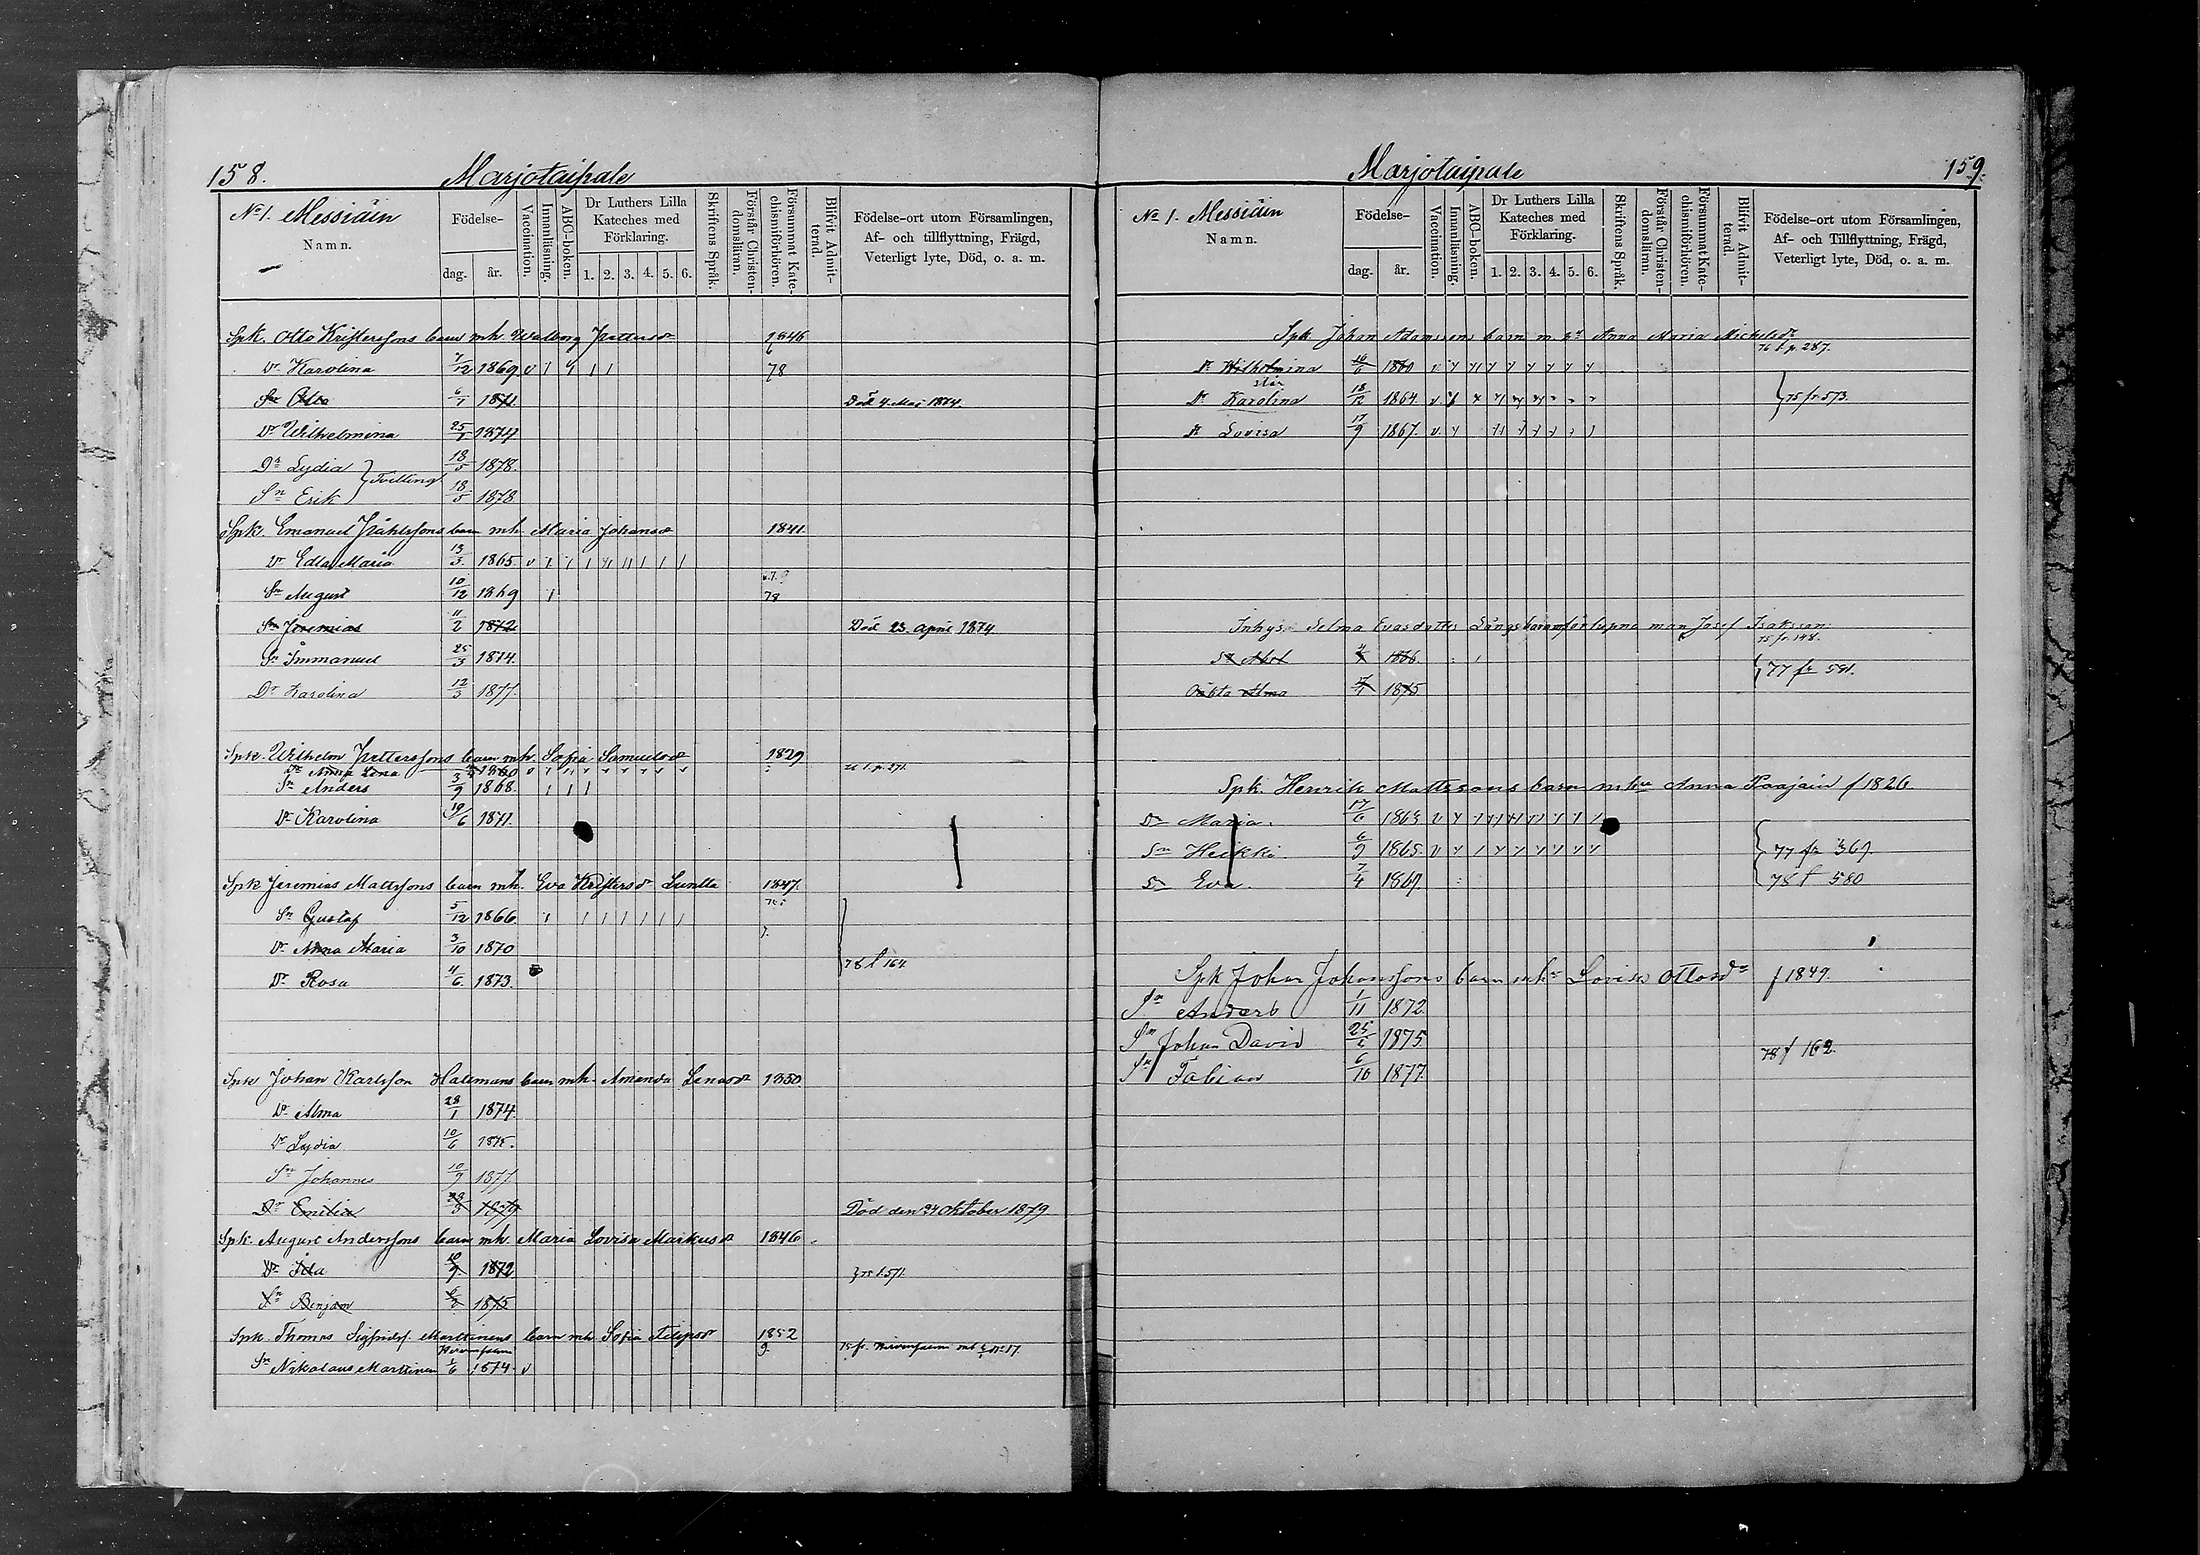 158.
Marjotaipale
No 1. Messidèn
Namn.
Födelse-
dag.
år.
Vaccination.
Innanläsning.
ABC-boken.
Dr Luthers Lilla
Kateches med
Förklaring.
1. 2. 3. 4. 5. 6.
Skriftens Språk.
Förstår Christen-
domsläran.
Försummat Kate-
chismiförhören.
Blifvit Admit-
terad.
Födelse-ort utom Församlingen,
Af- och tillflyttning, Frägd,
Veterligt lyte, Död, o. a. m.
Spk. Otto Kristerssons barn mh. Walborg Pettersdr 1846
Dr Karolina 7/12 1869 v 78
Sn Otto 6/1 1871 Död 4 Maj 1874.
Dr Wilhelmina 1874
Dr Lydia 18/5 1878.
Tvilling
Sn Erik 18/5 1878
Spk. Emanuel barn mh. Maria Johansdr 1841.
Dr Edla Maria 13/3 1865. v
Sn August 10/12 1869 78
Sn Jeremias 11/2 1872 Död 23. April 1874
Sn Immanuel 25/3 1874.
Dr Karolina 12/3 1877.
Spk. Wilhelm Petterssons barn mh. Sofia Samuelsdr 1829
Dr Anna Lena 1860 v
Sn Anders 3/9 1868.
Dr Karolina 19/6 1871.
Spk Jeremias Mattssons barn mh. Eva Kristersdr 1847.
Sn Gustaf 5/12 1866
Dr Anna Maria 3/10 1870
78 f 164
Dr Rosa 4/6 1873.
Spk Johan Karlsson barn mh. Amanda Lenasdr 1850
Dr Alma 28/1 1874.
Dr Lydia 10/6 1875.
Sn Johannes 10/9 1877.
Dr Emilia 1879 Död den 24 Oktober 1879
Spk. August Anderssons barn mh. Maria Lovisa Markusdr 1846
Dr Ida 1872
Sn Benjam 1875
Spk. Thomas Sigfridsf. Marttinens barn mh. Sofia Filipsdr 1852
Sn Nikolaus Marttinen 1/6 1874 v
Marjotaipale
159.
No 1. Messidèn
Namn.
Födelse-
dag.
år.
Vaccination.
Innanläsning.
ABC-boken.
Dr Luthers Lilla
Kateches med
Förklaring.
1. 2. 3. 4. 5. 6.
Skriftens Språk.
Förstår Christen-
domsläran.
Försummat Kate-
chismiförhören.
Blifvit Admit-
terad.
Födelse-ort utom Församlingen,
Af- och Tillflyttning, Frägd,
Veterligt lyte, Död, o. a. m.
Spk. Johan Adamssons barn m. Anna Maria Mickelsdr
76 t. p. 287.
Dr Wilhelmina 1860 v
Dr Karolina 18/12 1864. v 75 fr. 573.
Dr Lovisa 17/9 1867. v
Inhys. Selma Evasdotter man Josef Isaksson
75 fr. 148.
Sn Abel 1866
77 fr 591.
Alma 1875
Spk. Henrik Mattssons barn m hu Anna Paajain f 1826
Dr Maria. 1863 v
Sn Heikki 6/9 1865. v 77 fr 369.
Dr Eva. 7/4 1869 78 f 580
Spk Johan Johanssons barn mhu Lovisa Ottosdr f 1849.
Sn Anders 1/11 1872
Sn Johan David 1875
78 f 162.
Sn Fabian 6/10 1877.